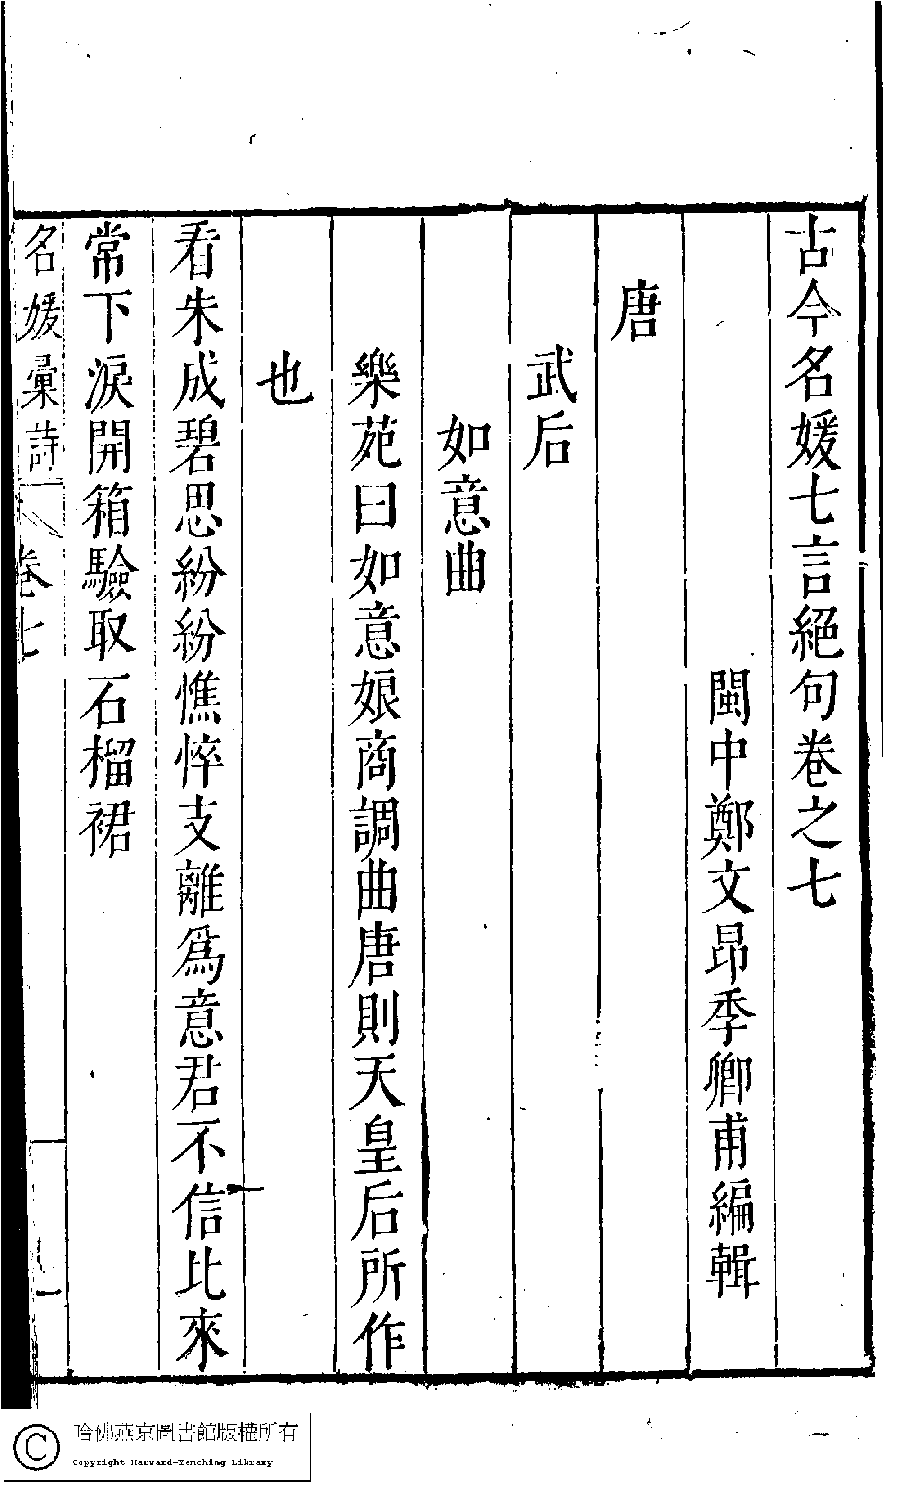 古今名媛七言絕句卷之七
閩中鄭文昂季卿甫編輯
唐
武后
如意曲
樂苑曰如意娘商調曲唐則天皇后所作
也
看朱成碧思紛紛憔悴支離爲意君不信比來
常下淚開箱驗取石榴裙
名媛彙詩
卷七
一
哈佛燕京圖書館版權所有
Copyright Harvard-Yenching Library